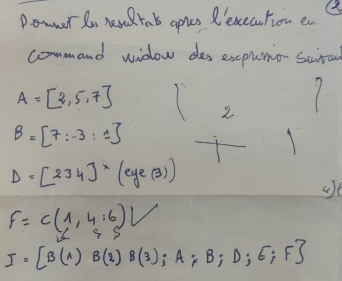 2
Donnet les resultats apres l'execution en
command widow des escprission suivant
A = [2,5,7]
2
B = [7:-3:1]
D = [2 3 4] * (eye (3))
F = C(1, 4:6)
I = [B(1) B(2) B(3); A ; B; D ; E; F]